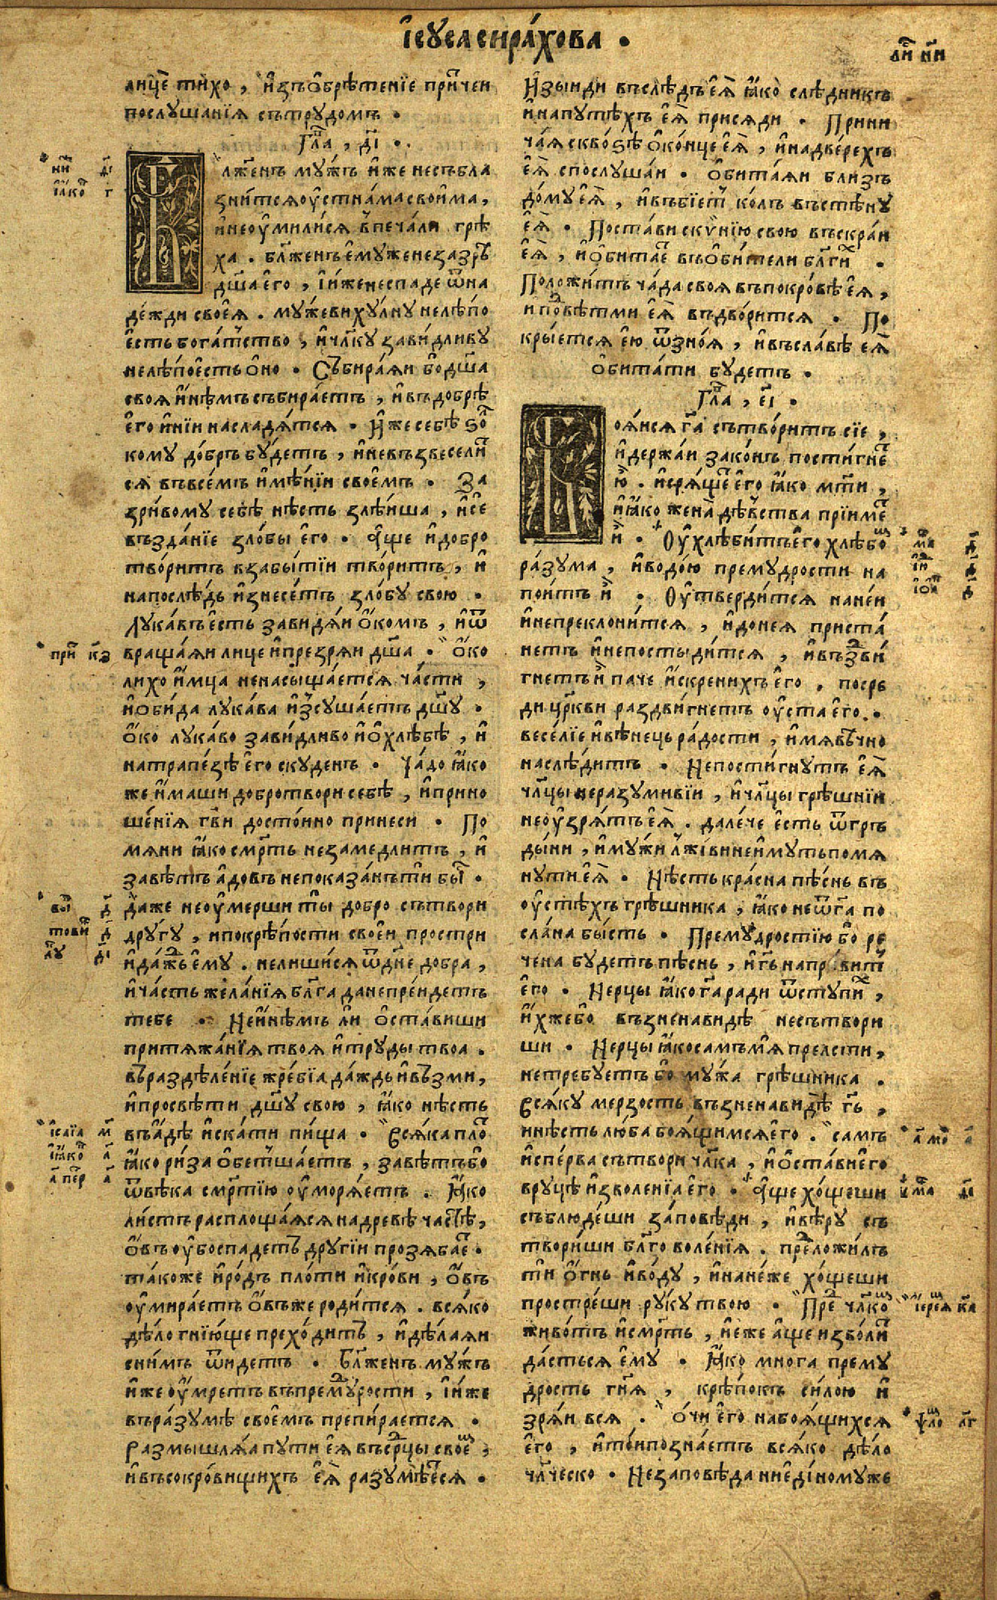 І҆сꙋса сира́хова .
лицѐ ти́хо , и҆з̾ѻбрѣ́тенїе при́тчеи
послꙋша́нїѧ съ трꙋдомъ .
Гла̑ , д҃і .
Бл҃же́нъ мꙋ́жъ и҆же несъбла
зни́тсѧ ѹ҆стна́ма свои́ма ,
и҆ не ѹ҆мили́сѧ в̾печа́ли грѣ
ха̀ . бл҃же́нъ є҆мꙋ́же не зазрѣ̀
дш҃а є҆го̀ , и҆ и҆́же не спаде ѿ на
де́жди своеѧ̀ . мꙋ́жеви хꙋ́лнꙋ нелѣ́по
є҆сть бога́тство , и҆ чл҃кꙋ зави́дливꙋ
нелѣ́по є҆сть ѻ҆но̀ . Събира́ѧи бо дш҃а
своѧ̀ и҆нѣ́мъ събира́етъ , и҆ въ добрѣ̀
є҆го̀ и҆ні́и насладѧ́тсѧ . И҆́же себѣ̀ ѕо́л
комꙋ до́бръ бꙋ́детъ , и҆ не възвесели́т
сѧ въ всемъ и҆мѣ́нїи свое́мъ . За
зри́вомꙋ себѣ̀ нѣ́сть злѣ́иша , и҆ сѐ
възда́нїе зло́бы є҆го̀ . А҆́ще и҆ добро̀
твори́тъ в̾забы́тїи твори́тъ , и҆
напослѣ́дь и҆знесе́тъ зло́бꙋ свою̀ .
Лꙋка́въ є҆сть зави́дѧи ѻ҆́комъ , и҆ ѿ
враща́ѧи лицѐ и҆ презрѧ́и дш҃а . Ѻ҆́ко
ли́хо и҆мца ненасыща́етсѧ ча́сти ,
и҆ ѻ҆би́да лꙋка́ва и҆зсꙋша́етъ дш҃ꙋ .
Ѻ҆́ко лꙋка́во зави́дливо и҆ ѻ҆ хлѣ́бѣ , и҆
на трапе́зѣ є҆го̀ скꙋ́денъ . Ча́до ꙗ҆́ко
же и҆́маши добро твори себѣ̀ , и҆ прино
ше́нїѧ гв҃и досто́ино принесѝ . По
мѧнѝ ꙗ҆́ко смр҃ть не заме́длитъ , и҆
завѣ́тъ а҆́довъ не пока́занъ ти бы́сть .
Да́же не ѹ҆́мерши ты̀ добро̀ сътворѝ
дрꙋ́гꙋ , и҆ по крѣ́пости свое́и прострѝ
и҆ да́ждь є҆мꙋ̀ . не лиши́сѧ ѿ дне добра̀ ,
и҆ ча́сть жела́нїѧ бл҃га да не пре́идетъ
тебѐ . Не и҆нѣ́мъ ли ѻ҆ста́виши
притѧжа́нїѧ твоѧ̀ и҆ трꙋды̀ твоа̀ .
въ раздѣле́нїе жре́бїа да́ждь и҆ възмѝ ,
и҆ просвѣтѝ дш҃ꙋ свою̀ , ꙗ҆́ко нѣ́сть
въ а҆́дѣ и҆ска́ти пи́ща . Всѧ́ка пло́ть
ꙗ҆́ко ри́за ѻ҆бетша́етъ , завѣ́тъ бо
ѿ вѣ́ка смр҃тїю ѹ҆морѧ́етъ . Ꙗ҆́ко
ли́стъ расплоща́ѧсѧ на древѣ ча́стѣ ,
ѻ҆́въ ѹ҆́бо спаде́тъ дрꙋгі́и прозѧба́етъ .
та́коже и҆ ро́дъ пло́ти и҆ кро́ви , ѻ҆́въ
ѹ҆мира́етъ ѻ҆́въ же роди́тсѧ . всѧ́ко
дѣ́ло гнїю́ще прехо́дитъ , и҆ дѣ́лаѧи
с ни́мъ ѿи́детъ . Бл҃же́нъ мꙋ́жъ
и҆́же ѹ҆́мретъ въ премꙋ́дрости , и҆ и҆́же
въ ра́зꙋмѣ свое́мъ препира́етсѧ .
Размышлѧ́ѧ пꙋтѝ є҆ѧ̀ въ ср҃цы свое́мъ ,
и҆ въ сокро́вищихъ є҆ѧ̀ разꙋмѣ́етсѧ .
И҆зы́иди въ слѣ́дъ є҆ѧ̀ ꙗ҆́ко слѣ́дникъ
и҆ на пꙋте́хъ є҆ѧ̀ присѧ́ди . Прини
ча́ѧ сквоѕѣ̀ ѻ҆ко́нце є҆ѧ̀ , и҆ на две́рехъ
є҆ѧ̀ спослꙋша́и . ѻ҆бита́ѧи бли́зъ
до́мꙋ є҆ѧ̀ , и҆ въбїе́тъ ко́лъ въ стѣ́нꙋ
є҆ѧ̀ . Поста́ви скѵ́нїю свою̀ въ скра́и
є҆ѧ̀ , и҆ ѻ҆бита́етъ въ ѻ҆би́тели бл҃ги́хъ .
Положи́тъ ча́да своѧ̀ въ покро́вѣ є҆ѧ̀ ,
и под̾ вѣ́тми є҆ѧ̀ въдвори́тсѧ . По
кры́етсѧ є҆ю ѿ зно́ѧ , и҆ въ сла́вѣ є҆ѧ̀
ѻ҆бита́ти бꙋ́детъ .
Гла̑ , є҃і .
Боѧ́исѧ гⷭ҇а сътвори́тъ сїѐ ,
и҆ держа́и зако́нъ пости́гнетъ
ю̀ . и҆ срѧ́щетъ є҆го̀ ꙗ҆́ко мт҃и ,
и҆ ꙗ҆́ко жена̀ дѣ́вства прїи́метъ
и҆̀ . Ѹ҆хлѣ́битъ є҆го хлѣ́бомъ
ра́зꙋма , и҆ водо́ю премꙋ́дрости на
пои́тъ и҆̀ . Ѹ҆тверди́тсѧ на не́и
и҆ не преклони́тсѧ , и҆ до неѧ приста́
нетъ и҆ не постыди́тсѧ , и҆ въздви́
гнетъ и҆̀ паче и҆́скренихъ є҆го̀ . посре
ди цр҃кви раздви́гнетъ ѹ҆ста̀ є҆го̀ .
весе́лїе и҆ вѣне́ць ра́дости , и҆мѧ вѣ́чно
наслѣ́дитъ . Не пости́гнꙋтъ є҆ѧ̀
чл҃цы неразꙋми́вїи , и҆ чл҃цы грѣ́шнїи
не ѹ҆́зрѧтъ є҆ѧ̀ . дале́че є҆сть ѿ гръ
ды́ни , и҆ мꙋ́жи лжи́ви не и҆́мꙋть помѧ
нꙋ́ти є҆ѧ̀ . Нѣ́сть красна̀ пѣ́снь въ
ѹ҆стѣ́хъ грѣ́шника , ꙗ҆́ко не ѿ гⷭ҇а по
слана̀ бы́сть . Премꙋ́дростїю бо ре
чена̀ бꙋ́детъ пѣ́снь , и҆ гь҃ напра́витъ
є҆го̀ . Не рцы̀ ꙗ҆́ко гⷭ҇а ради ѿстꙋпи́хъ ,
и҆́хже бо възненави́дѣ не сътвори
ши . Не рцы̀ ꙗ҆́ко са́мъ мѧ̀ прелстѝ ,
не тре́бꙋетъ бо мꙋ́жа грѣ́шника .
Всѧ́кꙋ ме́рзость възненави́дѣ гь҃ ,
и нѣ́сть лю́ба боѧ́щимсѧ є҆го̀ . са́мъ
и҆спе́рва сътворѝ чл҃ка , и҆ ѻ҆ста́ви є҆го
в рꙋцѣ̀ и҆зволе́нїа є҆го̀ . А҆́ще хо́щеши
съблюде́ши за́повѣди , и҆ вѣ́рꙋ съ
твори́ши бл҃говоле́нїѧ . предложи́лъ
тѝ ѻ҆́гнь и҆ во́дꙋ , и҆ на не́же хо́щеши
простре́ши рꙋ́кꙋ твою̀ . Пред̾ чл҃комъ
живо́тъ и҆ смр҃ть , и҆ є҆же а҆́ще и҆зво́литъ
да́стьсѧ є҆мꙋ̀ . Ꙗ҆́ко многа прем꙽ꙋ́
дрость гн҃ѧ , крѣ́покъ си́лою и҆
зрѧ́и всѧ̀ . ѻ҆́чи є҆го̀ на боѧ́щихсѧ
є҆го̀ , и҆ то́и позна́етъ всѧ́ко дѣ́ло
чл҃ческо . Не заповѣ́да ни є҆ди́номꙋже